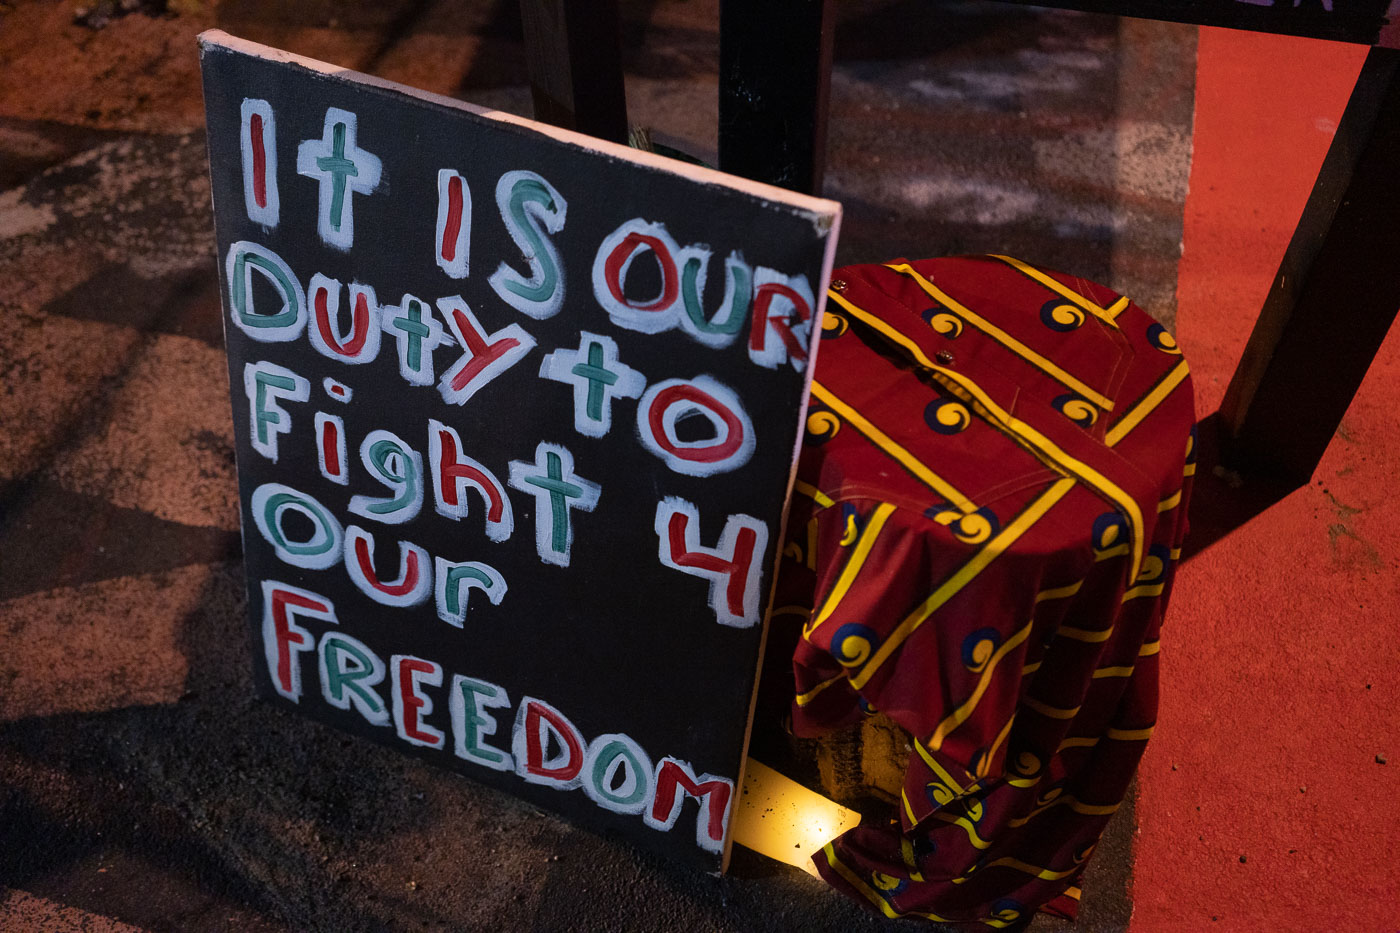 It IS OUR
Duty to
Fight 4
Our
FREEDOM